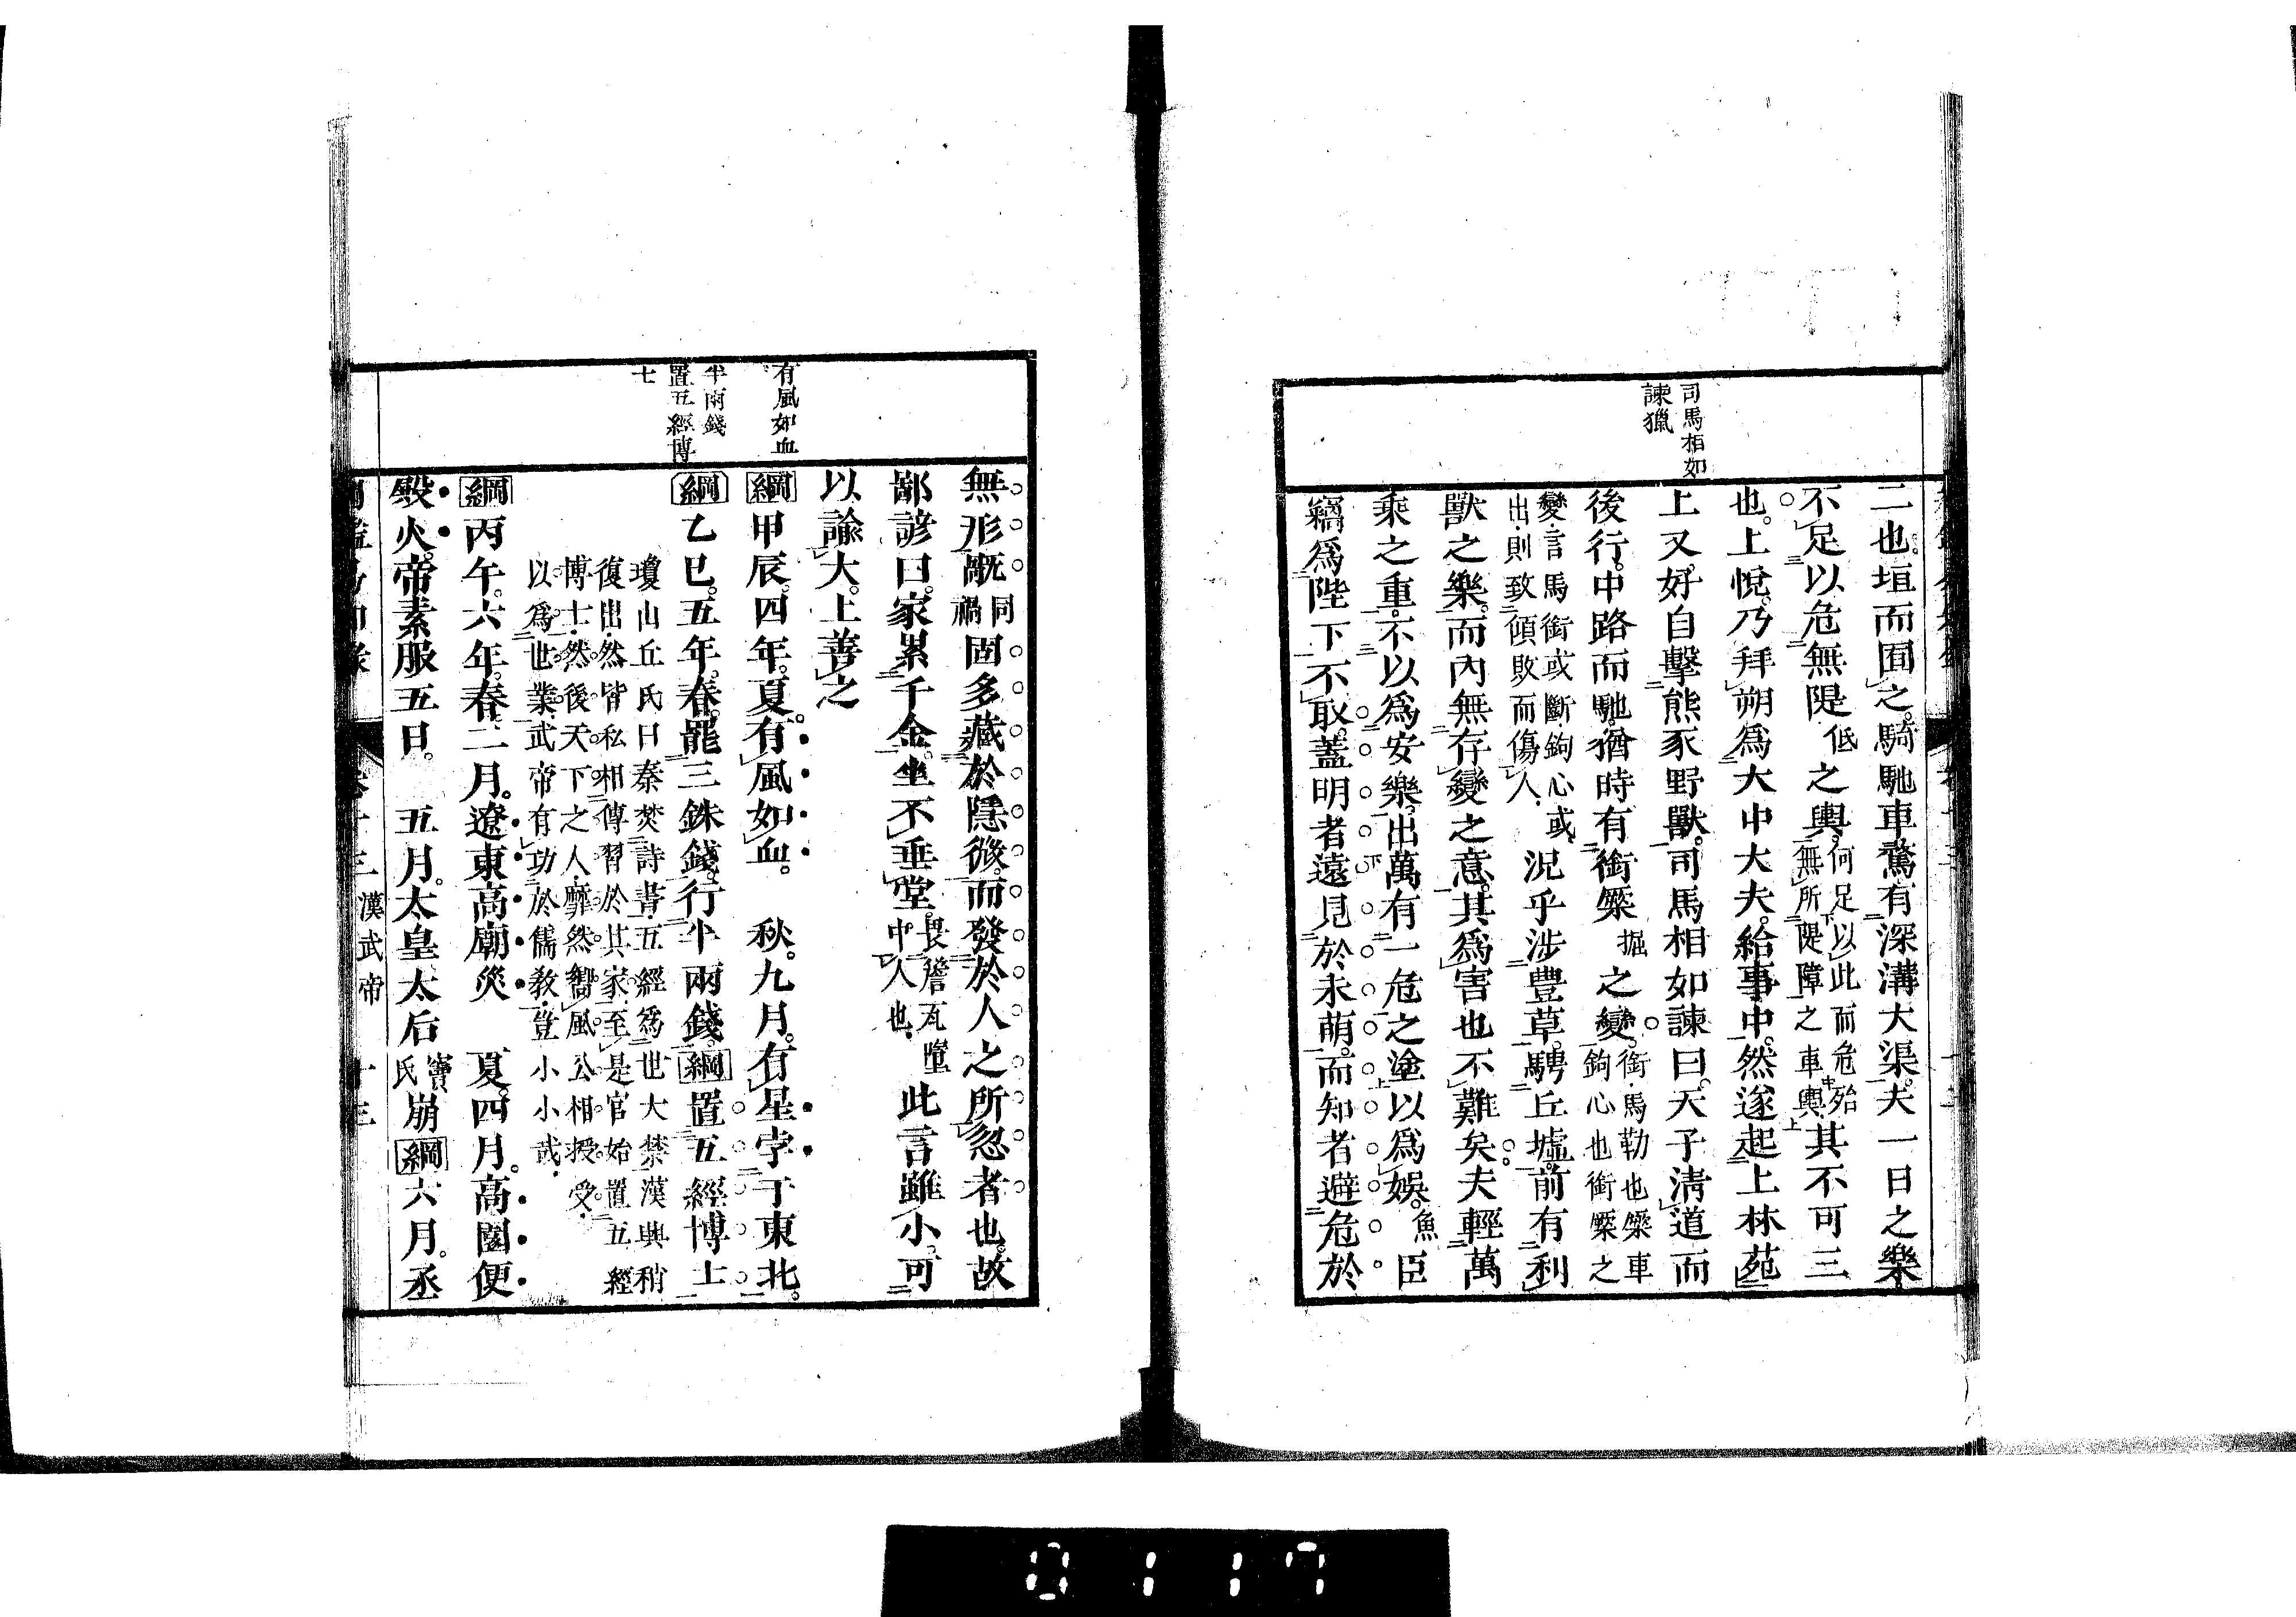 司馬相如
諫獵
二也。垣而囿之。騎馳車騖有深溝大渠。夫一日之樂
不足以危無隄低之輿。何足以此而危殆
無所隄障之車輿。其不可三
也。上悅。乃拜朔爲大中大夫。給事中。然遂起上林苑
上又好自擊熊豕野獸。司馬相如諫曰。天子清道而
後行。中路而馳。猶時有銜橜掘之變。銜馬勒也橜車
鉤心也銜橜之
變言馬銜或斷鉤心或
出則致傾敗而傷人
況乎涉豊草。騁丘墟。前有利
獸之樂。而內無存變之意。其爲害也不難矣。夫輕萬
乘之重。不以爲安樂。出萬有一危之塗以爲娛。魚臣
竊爲陛下不取。蓋明者遠見於未萌。而知者避危於
有風如血
半兩錢
置五經博
七
無形。旤同禍固多藏於隱微。而發於人之所忽者也。故
鄙諺曰。家累千金。坐不垂堂。畏簷瓦墮
中人也
此言雖小。可
以諭大。上善之
綱甲辰。四年。夏。有風如血。 秋。九月。有星孛于東北。
綱乙巳。五年。春。罷三銖錢。行半兩錢。綱置五經博士
瓊山丘氏曰秦焚詩書五經爲世大禁漢興稍
復出然皆私相傳習於其家至是官始置五經
博士然後天下之人靡然嚮風公相授受
以爲世業武帝有功於儒教豈小小哉
綱丙午。六年。春。二月。遼東高廟災 夏。四月。高園便
殿火。帝素服五日。 五月。太皇太后竇氏崩綱六月。丞
漢武帝 十三
0117